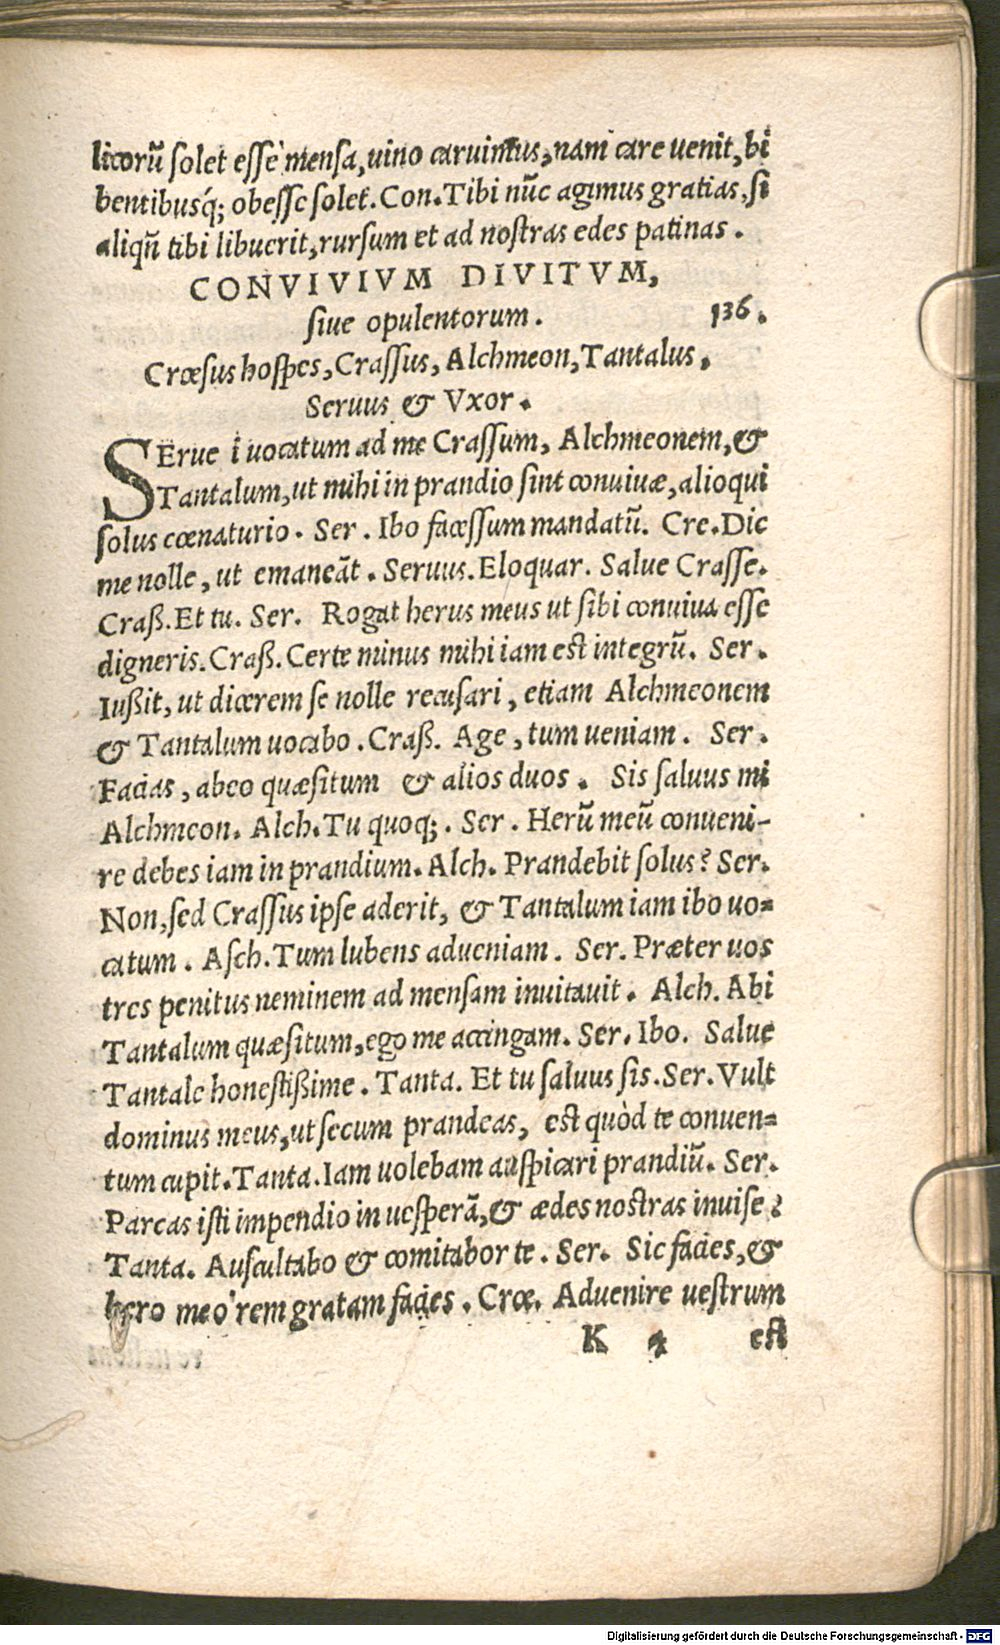 licorũ ſolet eſſe menſa, uino caruimus, nam care uenit, bi
bentibusq́; obeſſe ſolet. Con. Tibi nũc agimus gratias, ſi
aliqñ tibi libuerit, rurſum et ad noſtras edes patinas.
CONVIVIVM DIVITVM,
ſiue opulentorum. 136.
Crœſus hoſpes, Craſſus, Alchmeon, Tantalus.
Seruus & Vxor.
SErue i uocatum ad me Craſſum, Alchmeonem, &
Tantalum, ut mihi in prandio ſint conuiuæ, alioqui
ſolus cœnaturio. Ser. Ibo faceſſum mandatũ. Cre. Dic
me nolle, ut emaneãt. Seruus. Eloquar. Salue Craſſe.
Craß. Et tu. Ser. Rogat herus meus ut ſibi conuiua eſſe
digneris. Craß. Certe minus mihi iam eſt integrũ. Ser.
Iußit, ut dicerem ſe nolle recuſari, etiam Alchmeonem
& Tantalum uocabo. Craß. Age, tum ueniam. Ser.
Facias, abeo quæſitum & alios duos. Sis ſaluus mi
Alchmeon. Alch. Tu quoq;. Ser. Herũ meũ conueni-
re debes iam in prandium. Alch. Prandebit ſolus? Ser.
Non, ſed Craſſus ipſe aderit, & Tantalum iam ibo uo=
catum. Aſch. Tum lubens adueniam. Ser. Præter uos
tres penitus neminem ad menſam inuitauit. Alch. Abi
Tantalum quæſitum, ego me accingam. Ser. Ibo. Salue
Tantale honeſtißime. Tanta. Et tu ſaluus ſis. Ser. Vult
dominus meus, ut ſecum prandeas, eſt quòd te conuen=
tum cupit. Tanta. Iam uolebam auſpicari prandiũ. Ser.
Parcas iſti impendio in ueſperã, & ædes noſtras inuiſe?
Tanta. Auſcultabo & comitabor te. Ser. Sic facies, &
hero meo rem gratam facies. Crœ. Aduenire ueſtrum
K 4 eſt
Digitalisierung gefördert durch die Deutsche Forschungsgemeinschaft - DFG